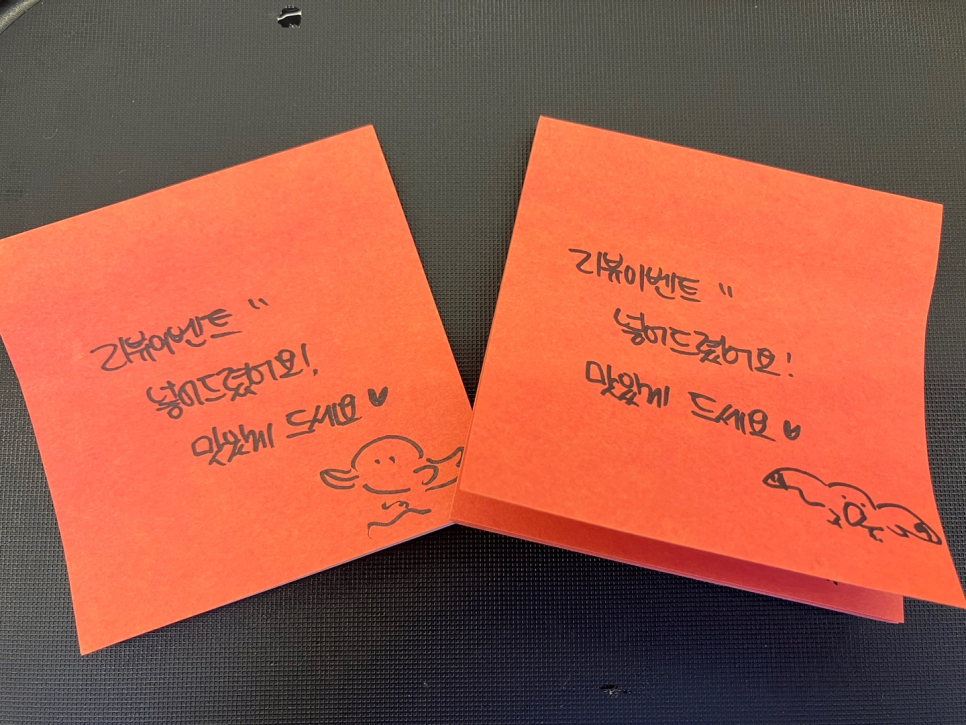 리뷰이벤트 "
넣어드렸어요!
맛있게 드세요♥
리뷰이벤트 "
넣어드렸어요!
맛있게 드세요♥